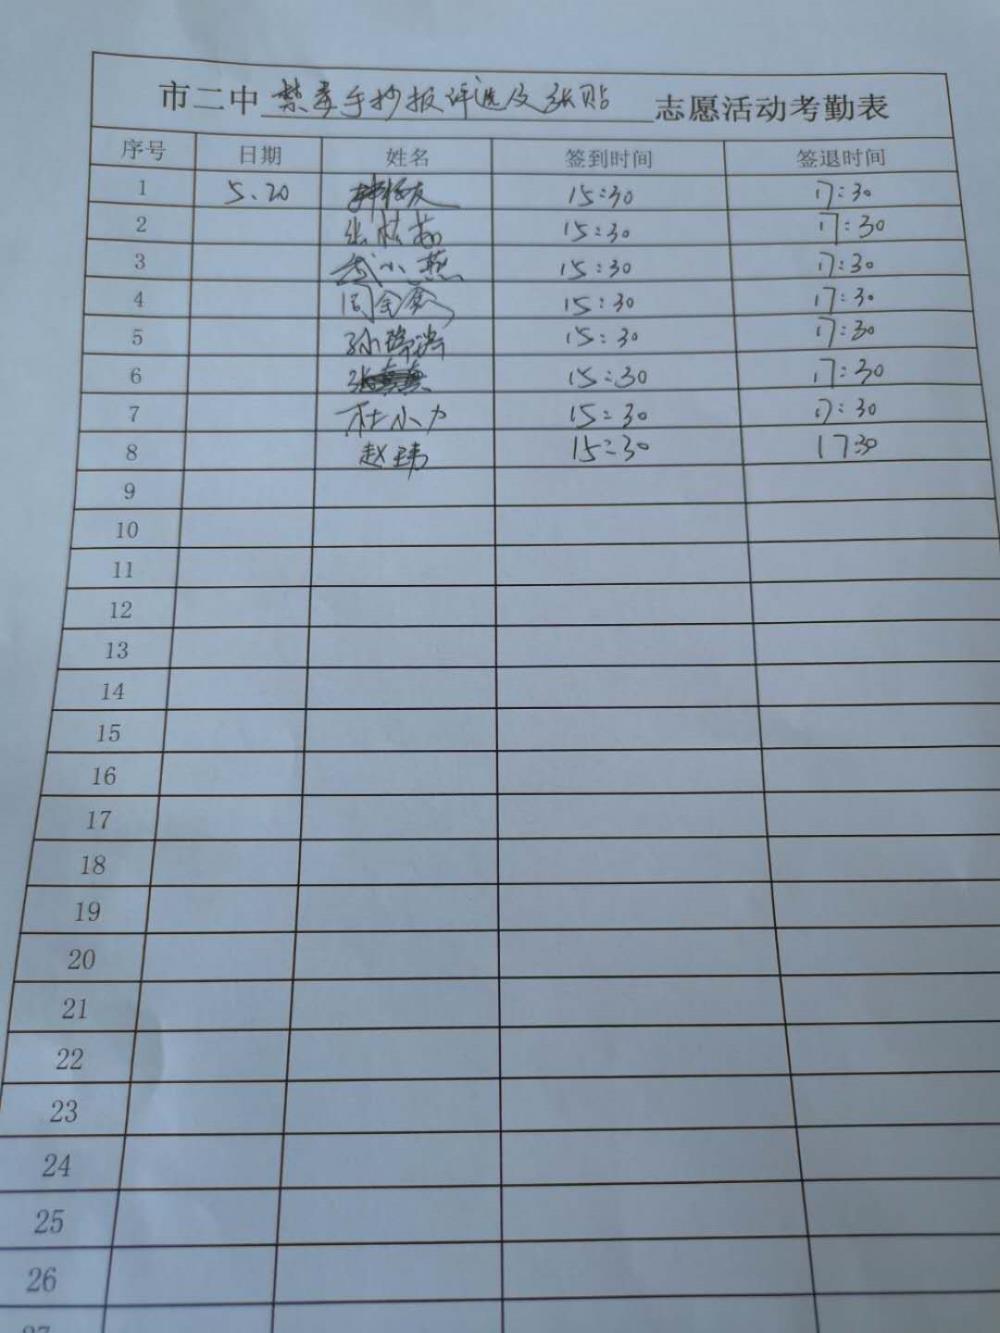 市二中 禁毒手抄报评选及张贴 志愿活动考勤表
序号 日期 姓名 签到时间 签退时间
1 5.20 15:30 17:30
2 15:30 17:30
3 武小燕 15:30 17:30
4 周金鑫 15:30 17:30
5 15:30 17:30
6 15:30 17:30
7 杜小力 15:30 17:30
8 赵玮 15:30 17:30
9
10
11
12
13
14
15
16
17
18
19
20
21
22
23
24
25
26
27